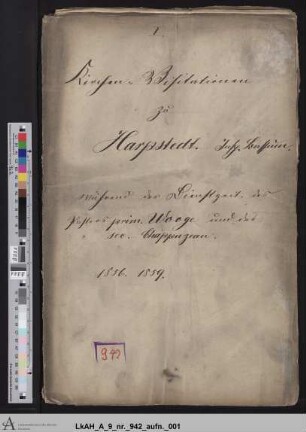 1.
Kirchen-Visitationen
zu
Harpstedt. Insp. Sulingen.
während der Dienstzeit des
Pastors prim. Wooge und des
sec.
1856. 1859.
942
LkAH_A_9_nr._942_aufn._001